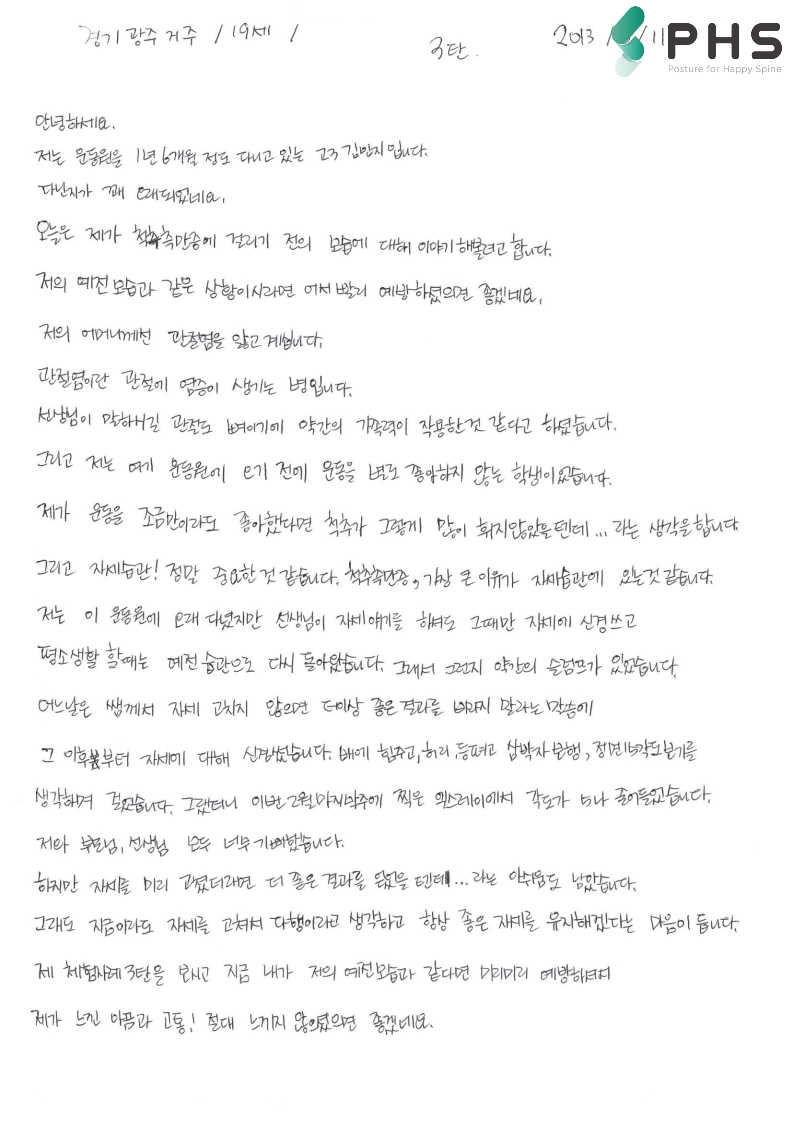 경기 광주 거주 / 19세 /
3탄.
2013 / / 11
PHS
Posture for Happy Spine
안녕하세요.
저는 운동원을 1년 6개월 정도 다니고 있는 고3 김민지입니다.
다닌지가 꽤 오래되었네요.
오늘은 제가 척추측만증에 걸리기 전의 모습에 대해 이야기 해볼려고 합니다.
저의 예전모습과 같은 상황이시라면 어서 빨리 예방하셨으면 좋겠네요.
저의 어머니께선 관절염을 앓고계십니다.
관절염이란 관절에 염증이 생기는 병입니다.
선생님이 말하시길 관절도 뼈이기에 약간의 가족력이 작용한것 같다고 하셨습니다.
그리고 저는 여기 운동원에 오기 전에 운동을 별로 좋아하지 않는 학생이었습니다.
제가 운동을 조금만이라도 좋아했다면 척추가 그렇게 많이 휘지않았을텐데... 라는 생각을 합니다
그리고 자세습관! 정말 중요한것 같습니다. 척추측만증, 가장 큰 이유가 자세습관에 있는것 같습니다.
저는 이 운동원에 오래 다녔지만 선생님이 자세얘기를 하셔도 그때만 자세에 신경쓰고
평소생활 할때는 예전 습관으로 다시 돌아왔습니다. 그래서 그런지 약간의 슬럼프가 있었습니다.
어느날은 쌤께서 자세 고치지 않으면 더이상 좋은 결과를 바라지 말라는 말씀에
그 이후부터 자세에 대해 신경썼습니다. 배에 힘주고, 허리, 등펴고 삼박자보행, 정면15각도보기를
생각하며 걸었습니다. 그랬더니 이번 2월 마지막주에 찍은 엑스레이에서 각도가 5나 줄어들었습니다.
저와 부모님, 선생님 모두 너무 기뻐했습니다.
하지만 자세를 미리 고쳤더라면 더 좋은 결과를 얻었을 텐데... 라는 아쉬움도 남았습니다.
그래도 지금이라도 자세를 고쳐서 다행이라고 생각하고 항상 좋은 자세를 유지해겠다는 마음이 듭니다.
제 체험사례 3탄을 보시고 지금 내가 저의 예전모습과 같다면 미리미리 예방하셔서
제가 느낀 아픔과 고통! 절대 느끼지 않으셨으면 좋겠네요.